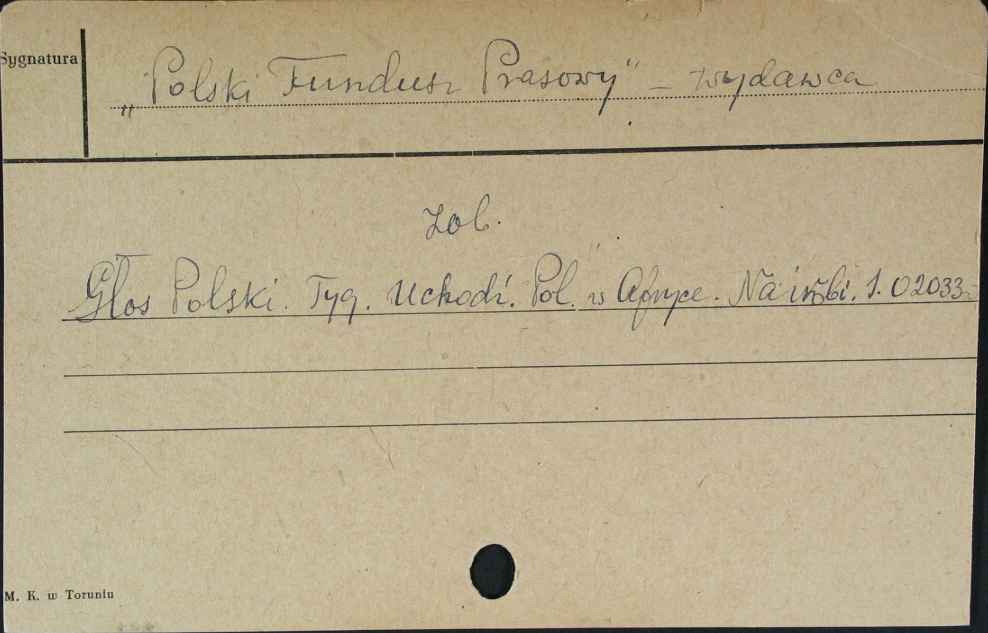 Sygnatura
„Polski Fundusz Prasowy" – wydawca
Zob.
Głos Polski. Tyg. Uchodź. Pol. w Afryce. Nairobi. S. 02033.
M. K. w Toruniu